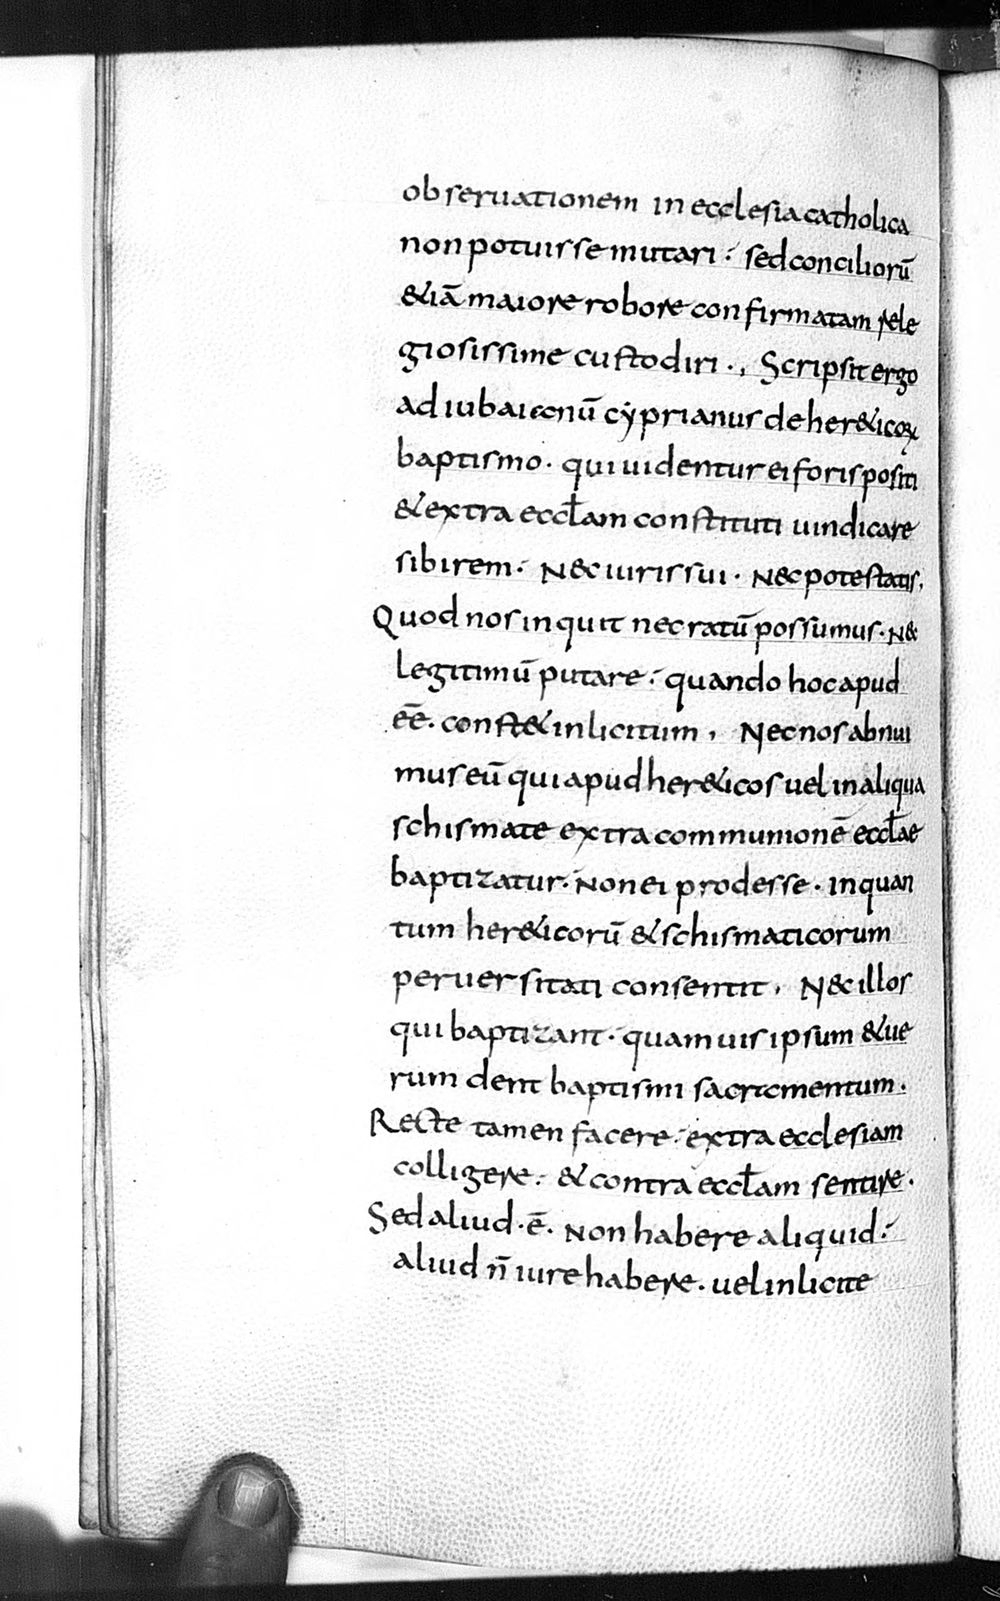 obseruationem in ecclesia catholica
non potuisse mutari ; sed conciliorū
&iā maiore robore confirmatam rele
giosissime custodiri ., Scripsit ergo
ad iubaianū cẏprianus de her&icoꝝ
baptismo · qui uidentur ei foris positi
& extra eccłam constituti uindicare
sibi rem · Nec iuris sui · Nec potestatis,
Quod nos inquit nec ratū possumus · Nec
legitimū putare ; quando hoc apud
eē̄ · const& inlicitum , Nec nos abnui
mus eū qui apud her&icos uel in aliqua
schismate extra communionē eccłae
baptizatur · Non ei prodesse · inquan
tum her&icorū & schismaticorum
peruersitati consentit , Nec illos
qui baptizant · quamuis ipsum & ue
rum dent baptismi sacramentum ·
Recte tamen facere ; extra ecclesiam
colligere ; & contra eccłam sentire ·
Sed aliud · ē · Non habere aliquid ;
aliud n̄ iure habere · uel inlicite